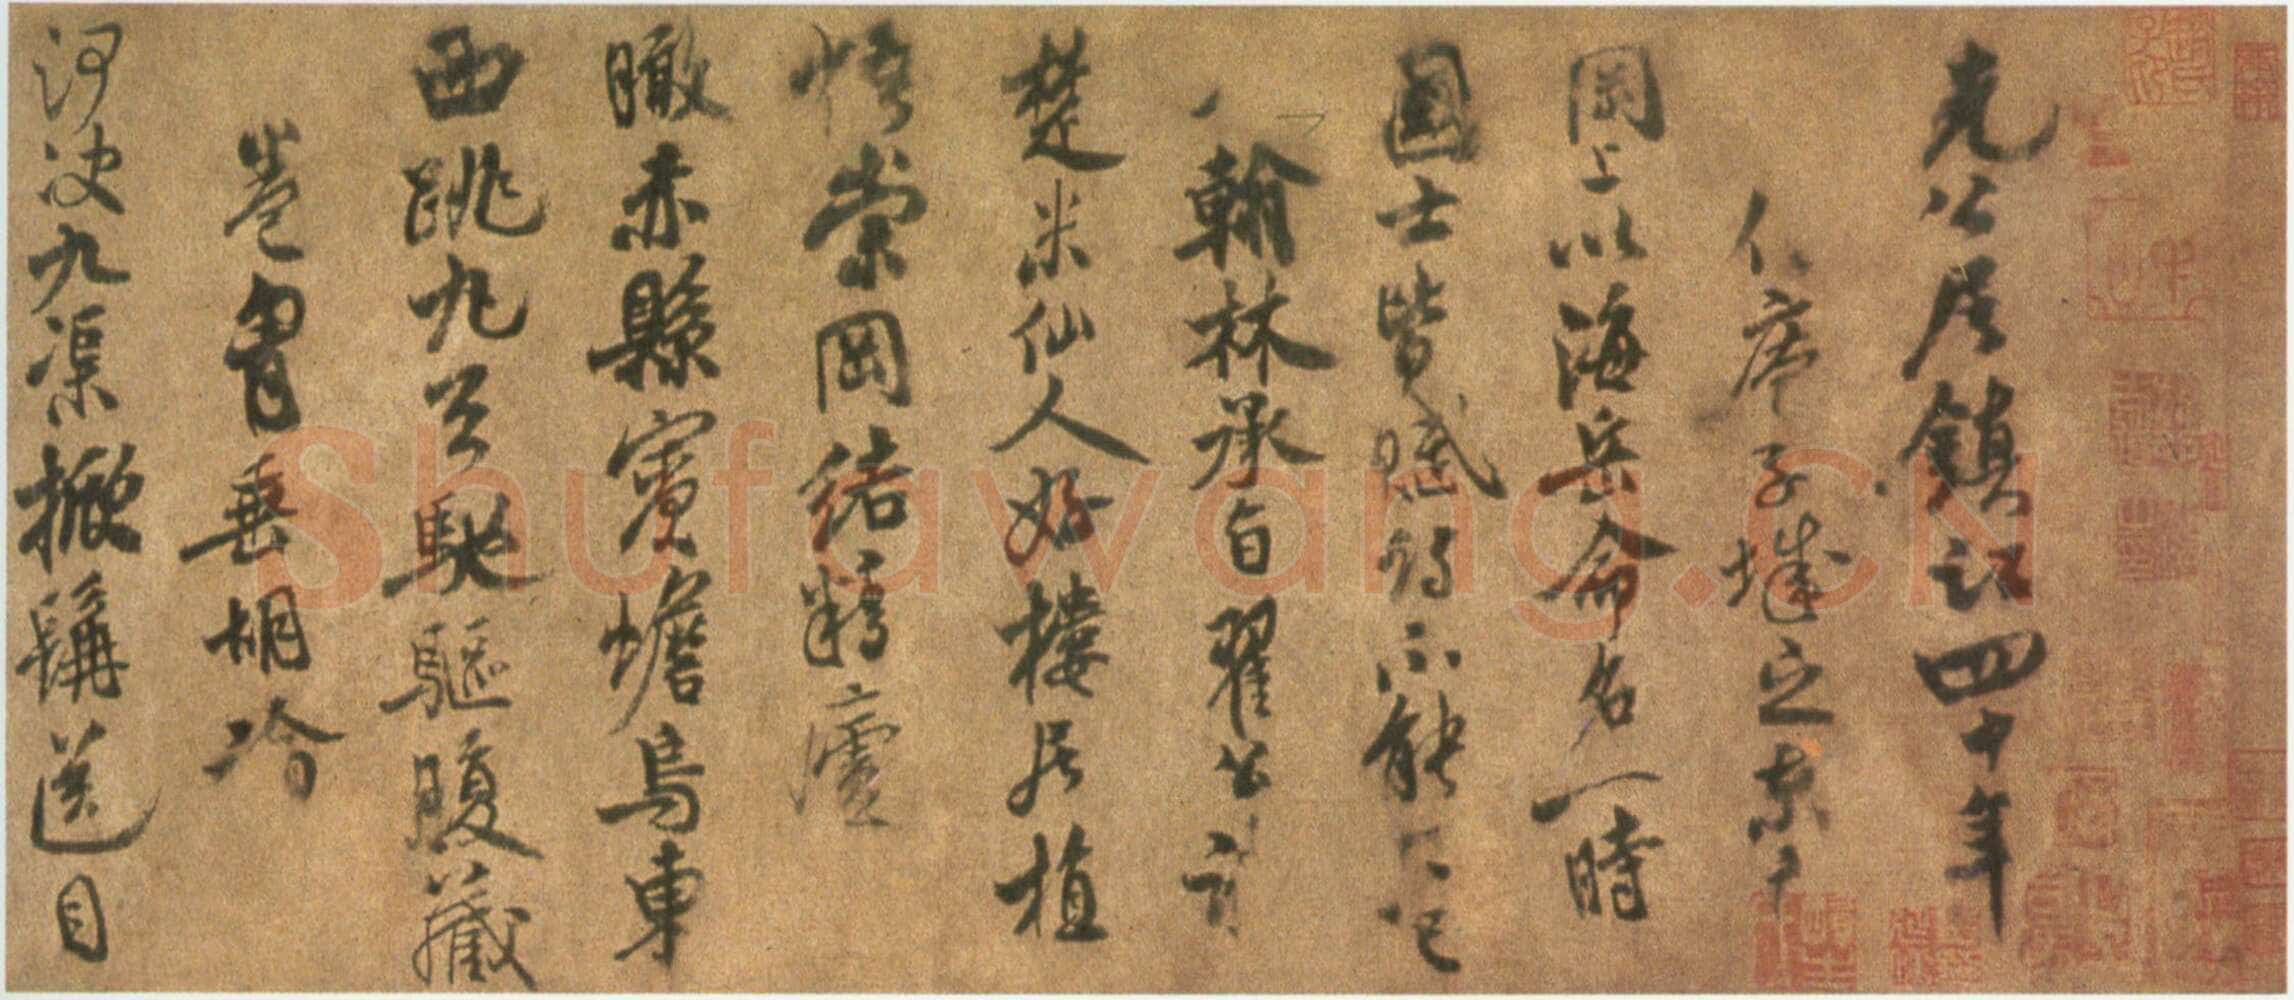 先公居鎮江四十年
作庵于城之東
岡上以海岳命名一時
國士皆賦詩不能
翰林承旨翟公詩
楚米仙人好樓居植
梧崇岡結精廬
瞰赤縣賓蟾烏東
西跳丸馳驅腹藏
卷胷垂胡
河決九渠送目
Shufawang.CN